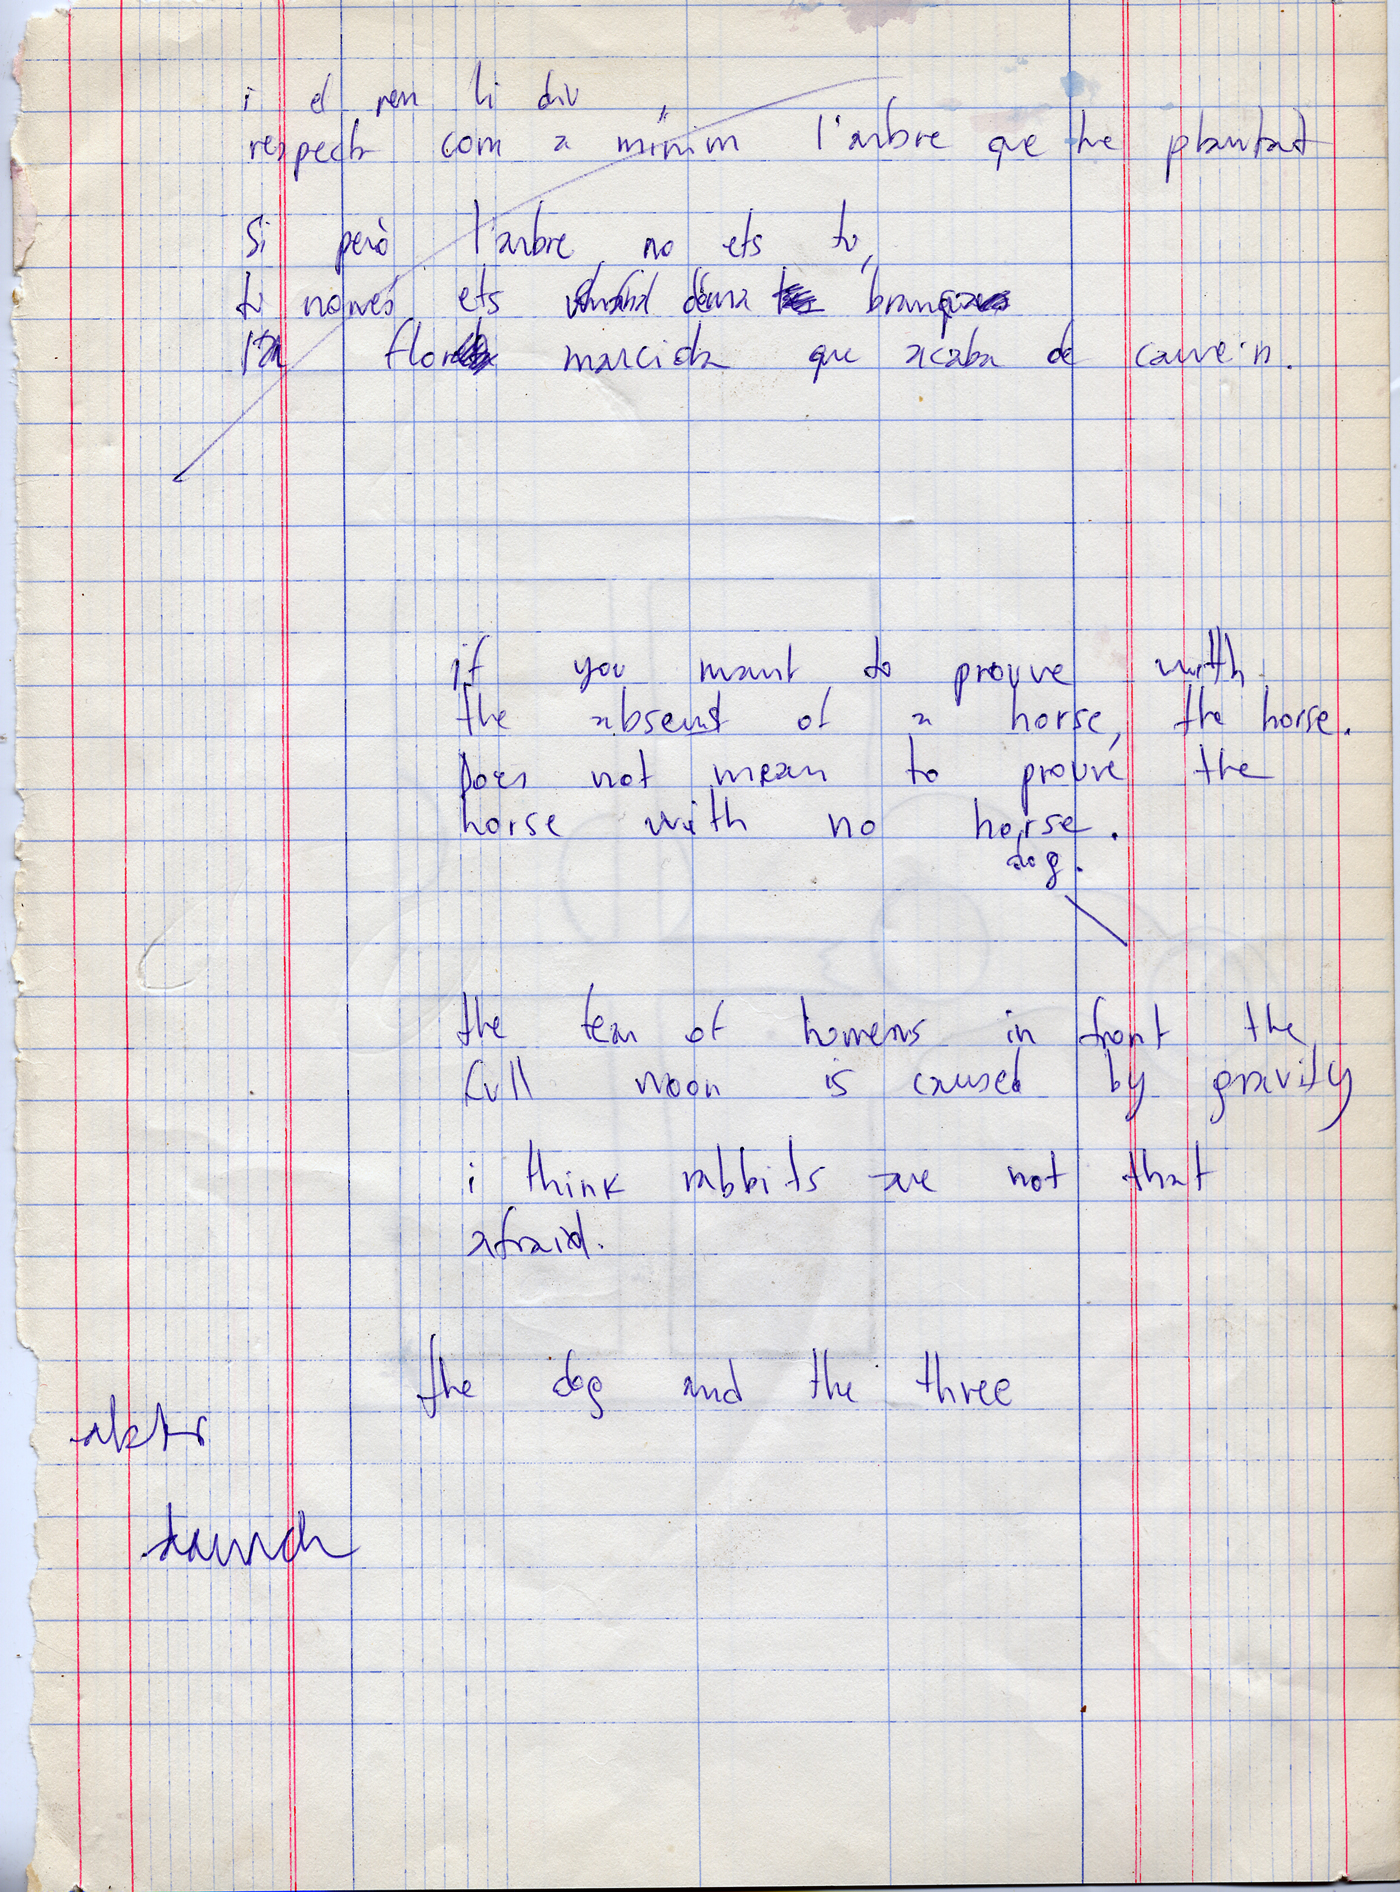 i el nen li diu
respecta com a mínim l'arbre que he plantat
Si però l'arbre no ets tu,
tu només ets d'una branca
flor marcida que acaba de caure'n.
if you want to prouve with
the absent of a horse, the horse.
Does not mean to prouve the
horse with no horse.
dog.
the tear of homens in front the
full moon is caused by gravity
i think rabbits are not that
afraid.
the dog and the three